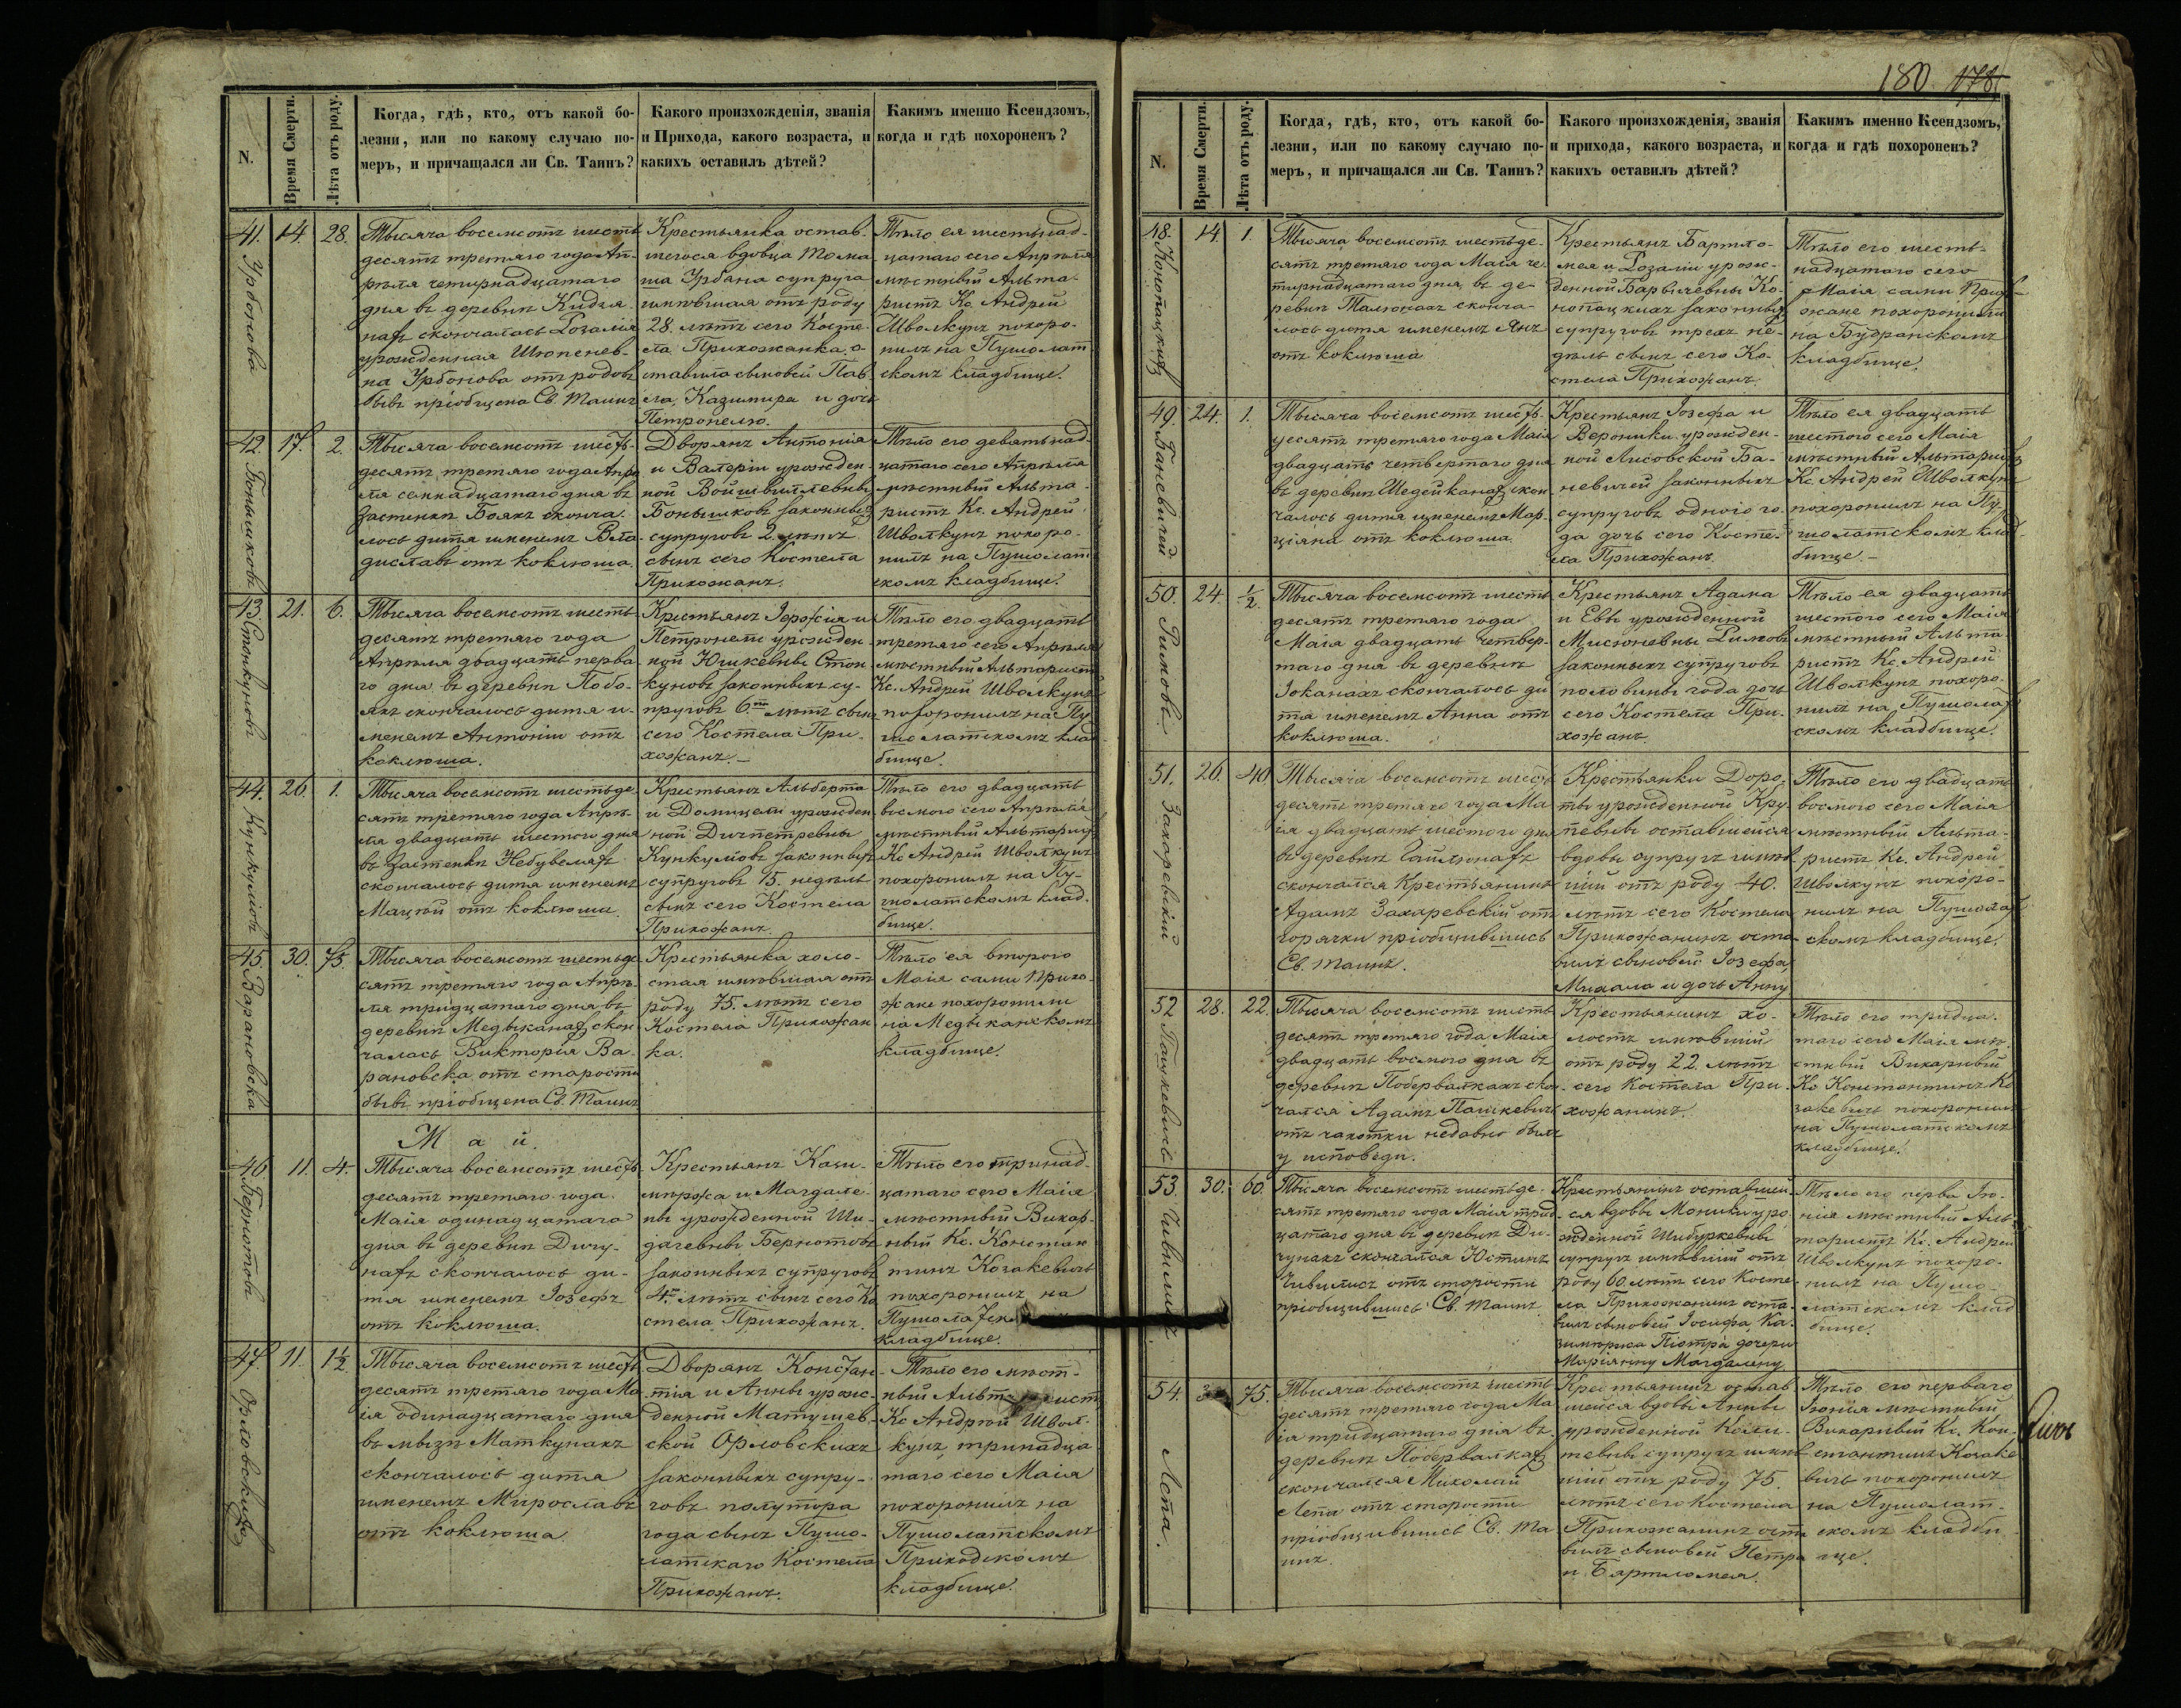 N.
Время Смерти.
Лѣта отъ роду.
Когда, гдѣ, кто, отъ какой бо-
лезни, или по какому случаю по-
меръ, и причащался ли Св. Таинъ?
Какого произхожденія, званія
и Прихода, какого возраста, и
какихъ оставилъ дѣтей?
Какимъ именно Ксендзомъ,
когда и гдѣ похороненъ?
41.
Урбонова
14.
28.
Тысяча восемсотъ шесть
десятъ третяго года Ап-
рѣля четирнадцатаго
дня въ деревнѣ
скончалась Розалія
урожденная
на Урбонова отъ родовъ
бывъ пріобщена Св. Таинъ
Крестьянка остав-
шегося вдовца Тома-
ша Урбана супруга
имѣвшая отъ роду
28. лѣтъ сего Косте-
ла Прихожанка о-
ставила сыновей Пав-
ла, Казимира и дочь
Петронелю.
Тѣло ея шестьнад-
цатаго сего Апрѣля
мѣстный Альта-
ристъ Кс. Андрей
Шволкунъ похоро-
нилъ на Пушолат
скомъ кладбище.
42.
Боньшковъ
17.
2.
Тысяча восемсотъ шесть-
десятъ третяго года Апрѣ
ля семнадцатаго дня въ
застенкѣ Боякъ сконча-
лось дитя именемъ Вла-
диславъ отъ коклюша.
Дворянъ Антонія
и Валеріи урожден-
ной Войшвилевны
Боньшковъ законныхъ
супруговъ 2. лѣтъ
сынъ сего Костела
Прихожанъ.
Тѣло его девятьнад
цатаго сего Апрѣля
мѣстный Альта-
ристъ Кс. Андрей
Шволкунъ похоро-
нилъ на Пушолат
скомъ кладбище.
43.
Стонкуновъ
21.
6.
Тысяча восемсотъ шесть
десятъ третяго года
Апрѣля двадцать перва
го дня въ деревнѣ Побо-
якъ скончалось дитя и-
менемъ Антоніи отъ
коклюша.
Крестьянъ и
Петронели урожден
ной Юшкевны Стон
куновъ законныхъ су-
пруговъ 6. лѣтъ сынъ
сего Костела При-
хожанъ.
Тѣло его двадцать
третяго сего Апрѣля
мѣстный Альтаристъ
Кс. Андрей Шволкунъ
похоронилъ на Пу-
шолатскомъ клад
бище.
44.
Кункуловъ
26.
1.
Тысяча восемсотъ шестьде-
сятъ третяго года Апрѣ-
ля двадцать шестого дня
въ застенкѣ
скончалось дитя именемъ
Мацѣй отъ коклюша.
Крестьянъ Альберта
и Домицели урожден
ной
Кункуловъ законныхъ
супруговъ 15. недѣль
сынъ сего Костела
Прихожанъ.
Тѣло его двадцать
восмого сего Апрѣля
мѣстный Альтаристъ
Кс Андрей Шволкунъ
похоронилъ на Пу-
шолатскомъ клад-
бище.
45.
Варановска
30.
75.
Тысяча восемсотъ шестьде
сятъ третяго года Апрѣ-
ля тридцатаго дня въ
деревнѣ Медыканахъ скон
чалась Викторія Ва-
рановска отъ старости
бывъ пріобщена Св. Таинъ
Крестьянка холо-
стая имѣвшая отъ
роду 75. лѣтъ сего
Костела Прихожан
ка.
Тѣло ея второго
Маія сами прихо-
жане похоронили
на Медыканскомъ
кладбище.
Май.
46.
Бернотовъ
11.
4.
Тысяча восемсотъ шесть
десятъ третяго года
Маія одинадцатаго
дня въ деревнѣ Дичу-
нахъ скончалось ди-
тя именемъ Іозефъ
отъ коклюша.
Крестьянъ Кази-
мѣржа и Магдале-
ны урожденной Ши-
дагевны Бернотовъ
законныхъ супруговъ
4. лѣтъ сынъ сего Ко
стела Прихожанъ.
Тѣло его тринад-
цатаго сего Маія
мѣстный Викар-
ный Кс. Констан
тинъ Козакевичъ
похоронилъ на
кладбище.
47.
Орловскихъ
11.
1½
Тысяча восемсотъ шесть
десятъ третяго года Ма
ія одинадцатаго дня
въ мызѣ Маткунахъ
скончалось дитя
именемъ Мирославъ
отъ коклюша
Дворянъ Констан-
тія и Анны урож-
денной Матушев-
ской Орловскихъ
законныхъ супру-
говъ полутора
года сынъ Пушо-
латскаго Костела
Прихожанъ.
Тѣло его мѣст-
ный
Кс Андрей Швол-
кунъ тринадца
таго сего Маія
похоронилъ на
Пушолатскомъ
Приходскомъ
кладбище.
180
178
N.
Время Смерти.
Лѣта отъ роду.
Когда, гдѣ, кто, отъ какой бо-
лезни, или по какому случаю по-
меръ, и причащался ли Св. Таинъ?
Какого произхожденія, званія
и прихода, какого возраста, и
какихъ оставилъ дѣтей?
Какимъ именно Ксендзомъ,
когда и гдѣ похороненъ?
48.
Конопацкихъ
14.
1.
Тысяча восемсотъ шестьде-
сятъ третяго года Маія че-
тирнадцатаго дня въ де-
ревнѣ сконча-
лось дитя именемъ Янъ
отъ коклюша
Крестьянъ Бартло-
мея и Розаліи урож-
денной Ко-
нопацкихъ законныхъ
супруговъ трехъ не-
дѣль сынъ сего Ко-
стела Прихожанъ.
Тѣло его шесть-
надцатаго сего
Маія сами Прих-
ожане похоронили
на Будранскомъ
кладбище.
49.
Баневичей
24.
1.
Тысяча восемсотъ шесть-
десятъ третяго года Маія
двадцать четвертого дня
въ деревнѣ Шедейканахъ скон
чалось дитя именемъ Мар-
ціяна отъ коклюша.
Крестьянъ Іозефа и
Вероники урожден-
ной Лисовской Ба-
невичей законныхъ
супруговъ одного го-
да дочь сего Косте-
ла Прихожанъ.
Тѣло ея двадцать
шестого сего Маія
мѣстный Альтаристъ
Кс. Андрей Шволкунъ
похоронилъ на Пу-
шолатскомъ клад
бище.
50.
Римовъ.
24.
½.
Тысяча восемсотъ шесть
десятъ третяго года
Маія двадцать четвер-
таго дня въ деревнѣ
Іоканахъ скончалось ди
тя именемъ Анна отъ
коклюша.
Крестьянъ Адама
и Евы урожденной
Мисюневны Римовъ
законныхъ супруговъ
половины года дочь
сего Костела При-
хожанъ.
Тѣло ея двадцать
шестого сего Маія
мѣстный Альта-
ристъ Кс. Андрей
Шволкунъ похоро-
нилъ на Пушолат
скомъ кладбище.
51.
Захаревскій
26.
40
Тысяча восемсотъ шесть
десятъ третяго года Ма
ія двадцать шестого дня
въ деревнѣ Гайлюнахъ
скончался Крестьянинъ
Адамъ Захаревскій отъ
горячки пріобщившись
Св. Таинъ.
Крестьянки Доро-
ты урожденной Кру-
певны оставшейся
вдовы супругъ имѣв
шій отъ роду 40.
лѣтъ сего Костела
Прихожанинъ оста-
вилъ сыновей Іозефа,
Михала и дочь Анну
Тѣло его двадцать
восмого сего Маія
мѣстный Альта-
ристъ Кс. Андрей
Шволкунъ похоро-
нилъ на Пушолат
скомъ кладбище.
52
Пашкевичъ
28.
22.
Тысяча восемсотъ шесть
десятъ третяго года Маія
двадцать восмого дня въ
деревнѣ Побервалкахъ скон-
чался Адамъ Пашкевичъ
отъ чахотки недавно былъ
у исповеди.
Крестьянинъ хо-
лостъ имѣвшій
отъ роду 22. лѣтъ
сего Костела При-
хожанинъ.
Тѣло его тридца-
таго сего Маія мѣ-
стный Викарный
Кс Константинъ Ко
закевичъ похоронилъ
на Пушолатскомъ
кладбище.
53.
Чивилисъ.
30.
60.
Тысяча восемсотъ шестьде-
сятъ третяго года Маія трид-
цатаго дня въ деревнѣ Ди-
чунахъ скончался Юстинъ
Чивилисъ отъ старости
пріобщившись Св. Таинъ
Крестьянинъ оставшей
ся вдовы Моники уро
жденной Шибуркевны
супругъ имѣвшій отъ
роду 60. лѣтъ сего Косте-
ла Прихожанинъ оста-
вилъ сыновей Іосифа, Ка
зимѣриса Піотра дочери
Маріянну Магдалену
Тѣло его перва Ію-
нія мѣстный Аль-
таристъ Кс. Андрей
Шволкунъ похоро-
нилъ на Пушо
латскомъ клад
бище.
54.
Лепа.
75.
Тысяча восемсотъ шесть
десятъ третяго года Ма
ія тридцатаго дня въ
деревнѣ Побервалкахъ
скончался Миколай
Лепа отъ старости
пріобщившись Св. Та
инъ.
Крестьянинъ остав
шейся вдовы Анны
урожденной
супругъ имѣв
шій отъ роду 75.
лѣтъ сего Костела
Прихожанинъ оста
вилъ сыновей Петра
и Бартломея.
Тѣло его перваго
Іюнія мѣстный
Викарный Кс. Кон-
стантинъ Козаке
вичъ похоронилъ
на Пушолат-
скомъ кладби-
ще.